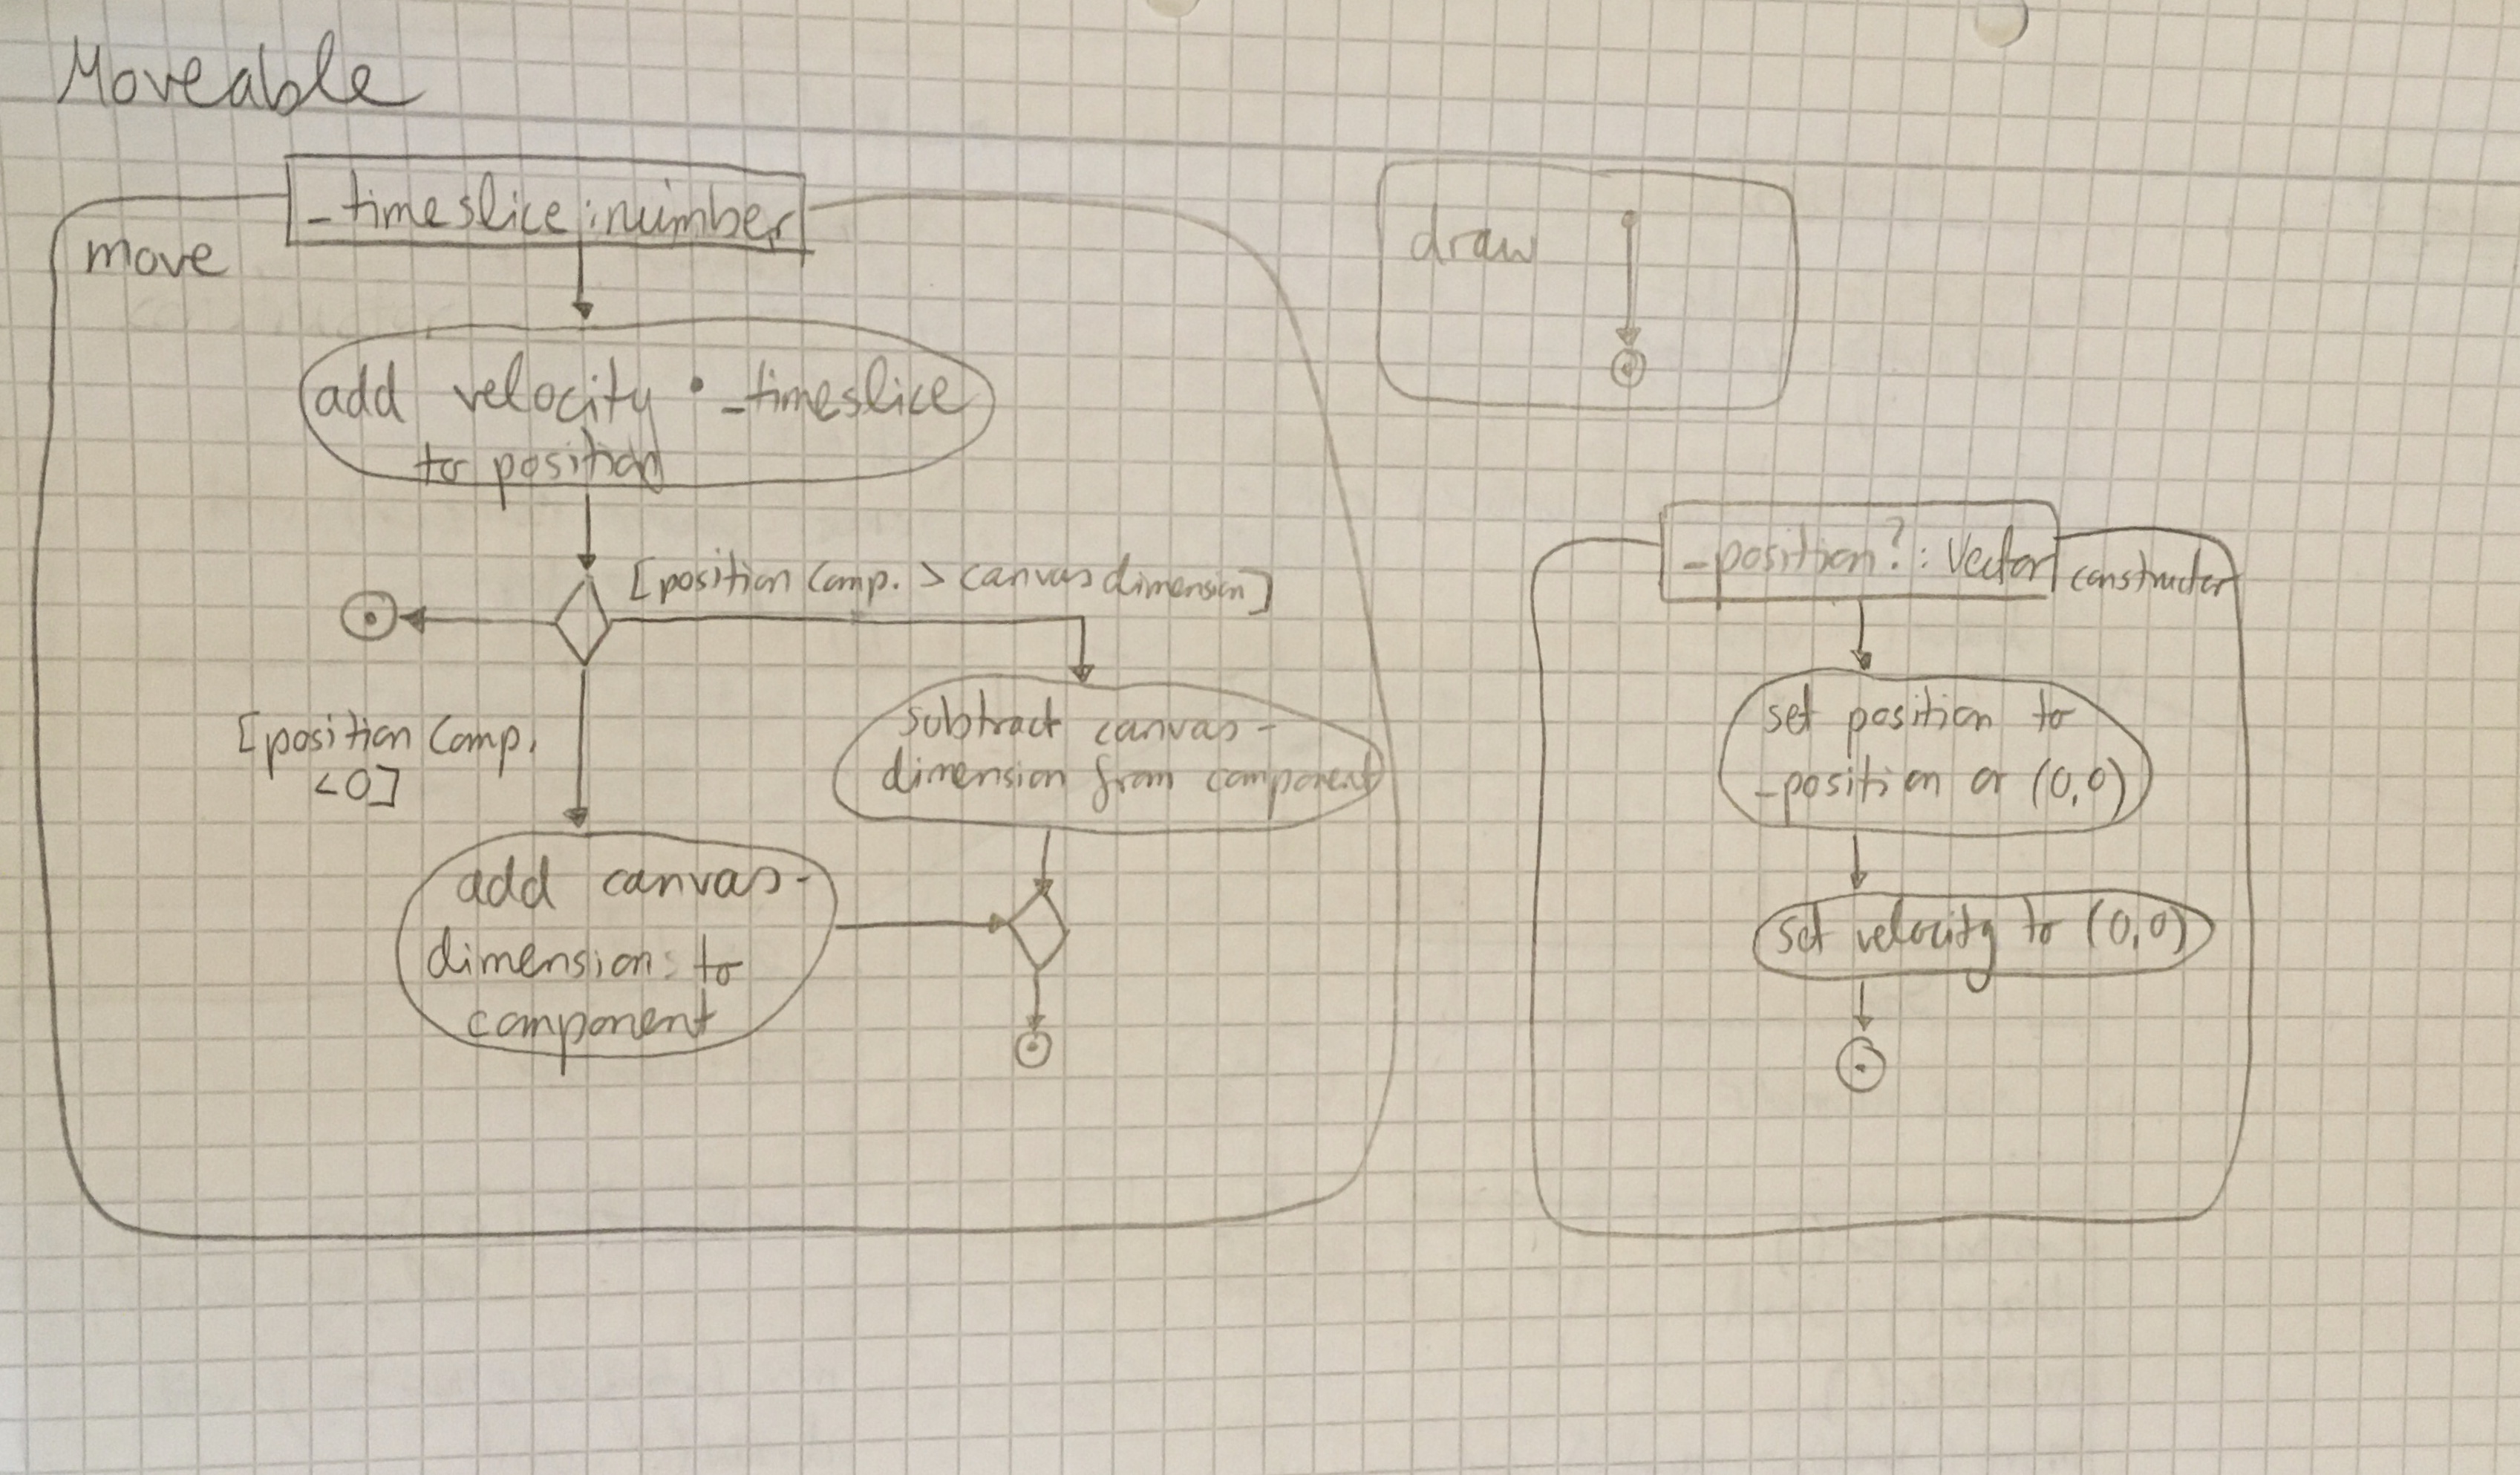 Moveable
_timeslice : number
move
add velocity • _timeslice
to position
[position Comp. > canvas dimension]
[position Comp.
<0]
subtract canvas-
dimension from component
add canvas-
dimension to
component
draw
_position? : Vector
constructor
set position to
_position or (0,0)
set velocity to (0,0)